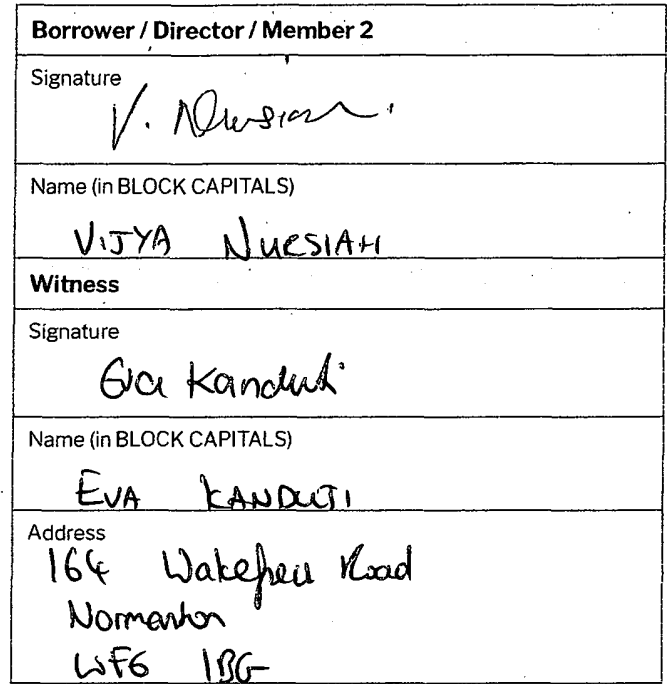 Borrower / Director / Member 2
Signature
V. Nursiah
Name (in BLOCK CAPITALS)
VIJYA NURSIAH
Witness
Signature
Eva Kanduti
Name (in BLOCK CAPITALS)
EVA KANDUTI
Address
164 Wakefield Road
Normanton
WF6 1BG